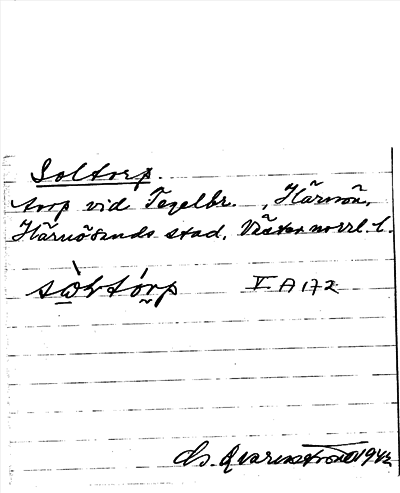 Soltorp.
torp vid Tegelbr., Härnön,
Härnösands stad, Västernorrl. l.
sòltórp V A 172
1942